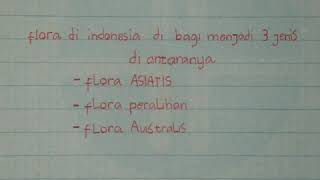 flora di indonesia di bagi menjadi 3 jenis
di antaranya
- flora ASIATIS
- flora peralihan
- flora Australis